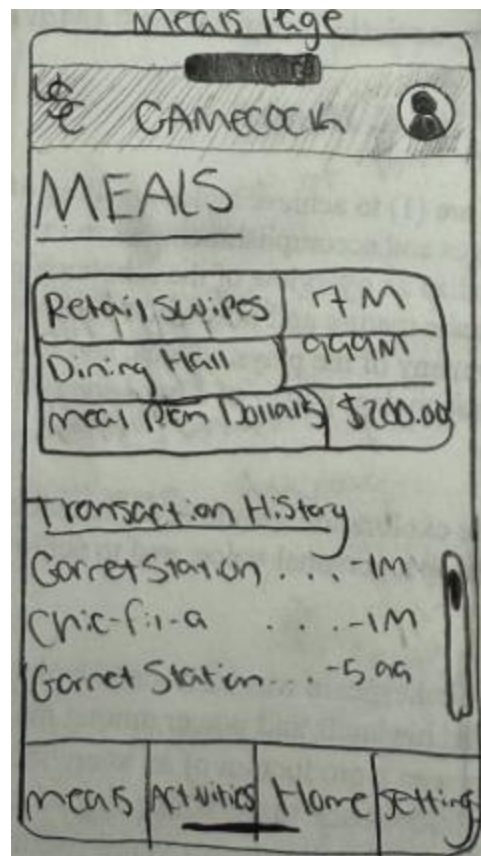 Meals Page
USC GAMECOCK
MEALS
Retail Swipes 7 M
Dining Hall 999M
Meal Plan Dollars $200.00
Transaction History
Garnet Station . . . -1M
Chic-fil-a . . . -1M
Garnet Station . . -5.99
Meals Activities Home Setting